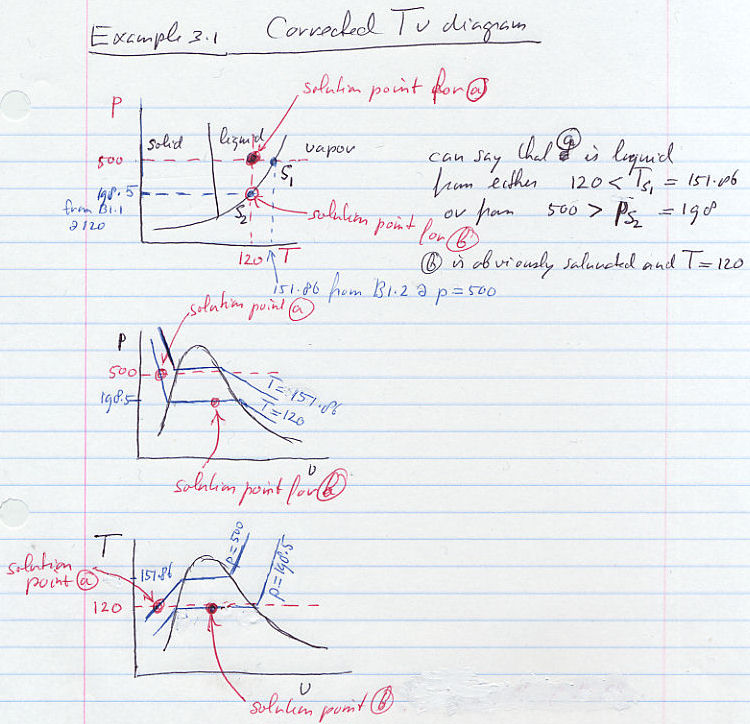 Example 3.1 Corrected Tv diagram
solution point for (a)
P
solid liquid vapor
500
S1
198.5
from B1.1
@ 120
S2
solution point
for (b)
120 T
151.86 from B1.2 @ p = 500
can say that (a) is liquid
from either 120 < TS1 = 151.86
or from 500 > PS2 = 198
(b) is obviously saturated and T = 120
solution point (a)
P
500
198.5
T = 151.86
T = 120
v
solution point for (b)
T
solution
point (a)
151.86
120
p = 500
p = 198.5
v
solution point (b)